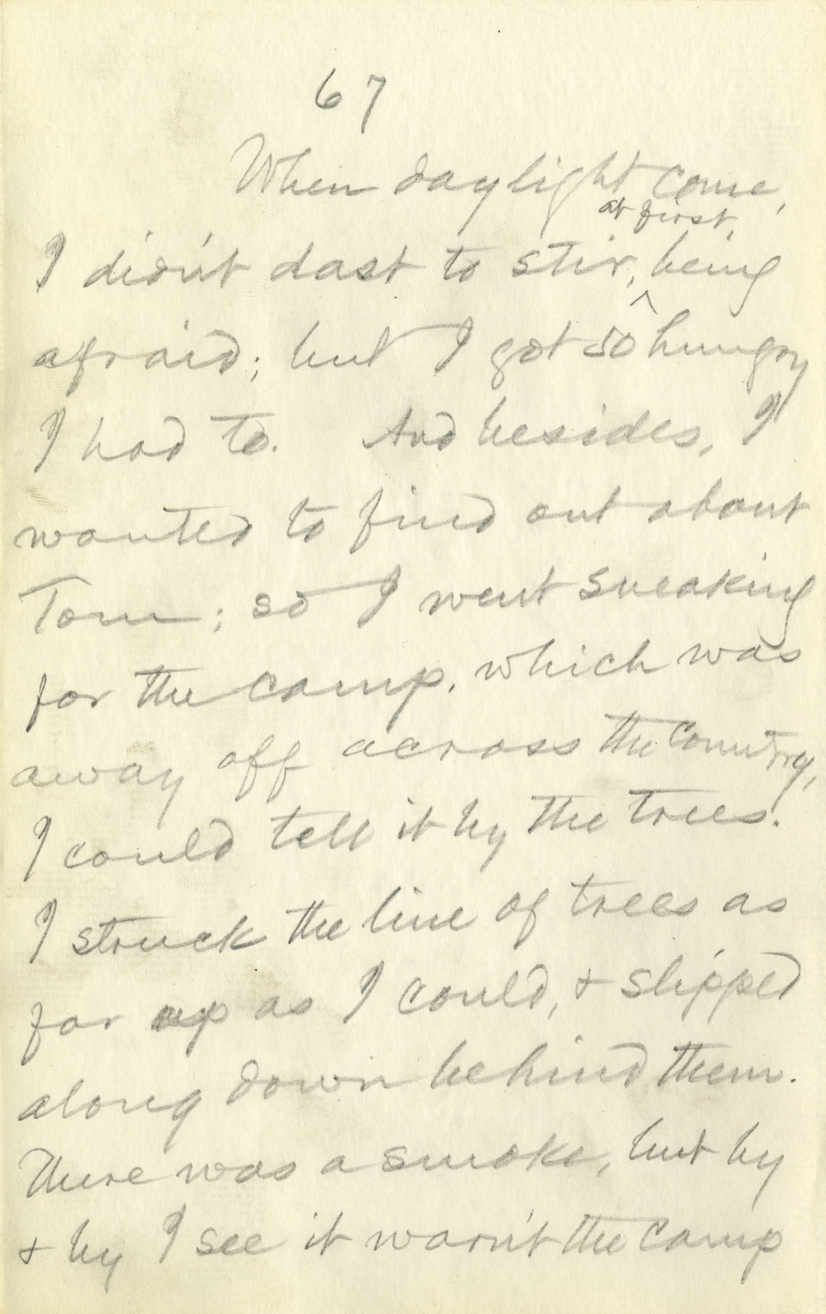 67
When daylight come,
at first,
I didn't dast to stir, ^ being
afraid; but I got so hungry
I had to. And besides, I
wanted to find out about
Tom; so I went sneaking
for the camp, which was
away off across the country,
I could tell it by the trees.
I struck the line of trees as
far up as I could, & slipped
along down behind them.
There was a smoke, but by
& by I see it warn't the camp